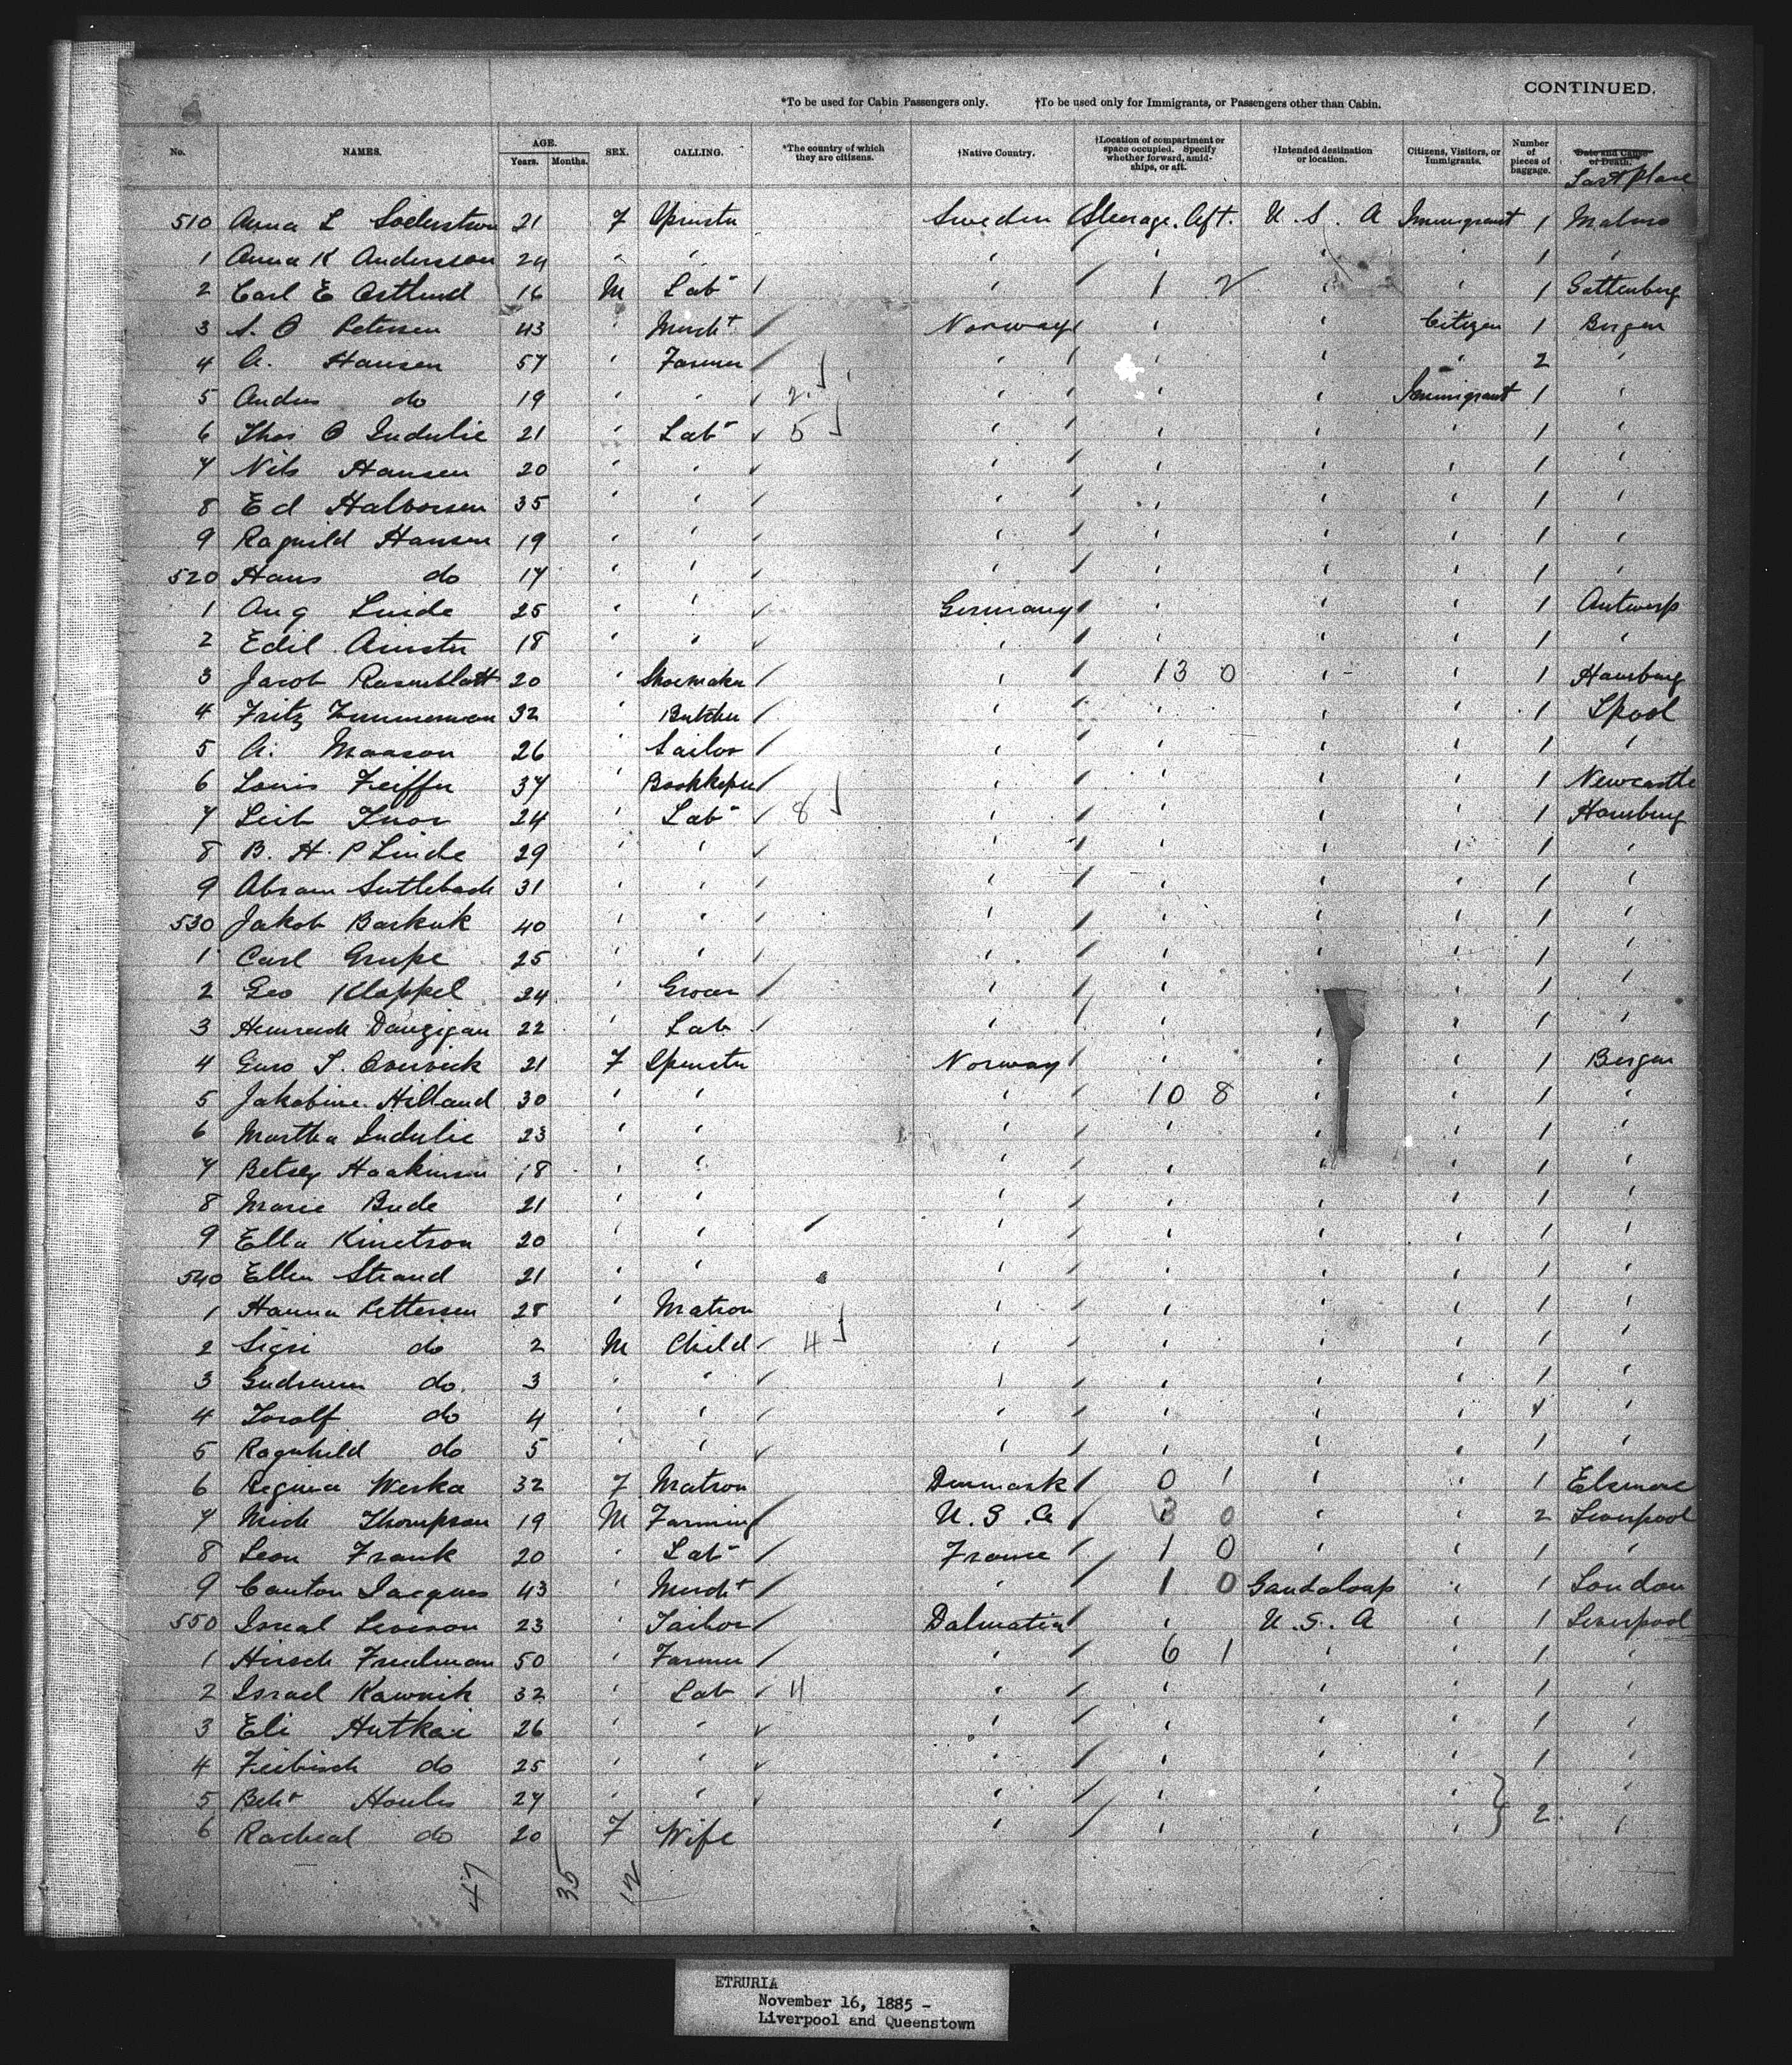 CONTINUED.
*To be used for Cabin Passengers only. †To be used only for Immigrants, or Passengers other than Cabin.
No. NAMES. AGE. Years. Months. SEX. CALLING. *The country of which they are citizens. †Native Country. †Location of compartment or space occupied. Specify whether forward, amidships, or aft. †Intended destination or location. Citizens, Visitors, or Immigrants. Number of pieces of baggage. Date and Cause of Death. Last place
510 Anna L Soderstrom 21 F Spinster Sweden Steerage. Aft. U.S.A Immigrant 1 Malmo
1 Anna K Andersson 24 " " " " " 1 "
2 Carl E Ostlund 16 M Labr " 1 2 " " 1 Gottenberg
3 S. O Petersen 43 " Mercht Norway " " Citizen 1 Bergen
4 A. Hansen 57 " Farmer " " " " 2 "
5 Anders do 19 " " 2 " " " Immigrant 1 "
6 Thos O Indulie 21 " Labr 5 " " " " 1 "
7 Nils Hansen 20 " " " " " " 1 "
8 Ed Halvorsen 35 " " " " " " 1 "
9 Ragnild Hansen 19 " " " " " " 1 "
520 Hans do 17 " " " " " " 1 "
1 Aug Linde 25 " " Germany " " " 1 Antwerp
2 Edil 18 " " " " " " 1 "
3 Jacob Rosenblatt 20 " Shoemaker " 13 0 " " 1 Hamburg
4 Fritz Zimmerman 32 " Butcher " " " " 1 Lpool
5 A. Maason 26 " Sailor " " " " 1 "
6 Louis Feiffer 37 " Bookkeeper " " " " 1 Newcastle
7 Leib Knor 24 " Labr 8 " " " " 1 Hamburg
8 B. H. P Linde 29 " " " " " " 1 "
9 Abram Suttleback 31 " " " " " " 1 "
530 Jakob Baskuk 40 " " " " " " 1 "
1 Carl Grupe 25 " " " " " " 1 "
2 Geo Klappel 24 " Grocer " " " " 1 "
3 Heinrich Danzigan 22 " Lab " " " " 1 "
4 Guro S. 21 F Spinster Norway " " " 1 Bergen
5 Jakobine Hilland 30 " " " 10 8 " " 1 "
6 Martha Indulie 23 " " " " " " 1 "
7 Betsey Haakinson 18 " " " " " " 1 "
8 Marie Bude 21 " " " " " " 1 "
9 Ella Kinetson 20 " " " " " " 1 "
540 Ellen Strand 21 " " " " " " 1 "
1 Hanna Pettersen 28 " Matron " " " " 1 "
2 Sigri do 2 M Child 4 " " " " 1 "
3 Gudrunn do. 3 " " " " " " 1 "
4 Toralf do 4 " " " " " " 1 "
5 Ragnhild do 5 " " " " " " 1 "
6 Regina Werka 32 F Matron Denmark 0 1 " " 1 Elsinore
7 Mich Thompson 19 M Farming U.S.A 3 0 " " 2 Liverpool
8 Leon Frank 20 " Labr France 1 0 " " 1 "
9 Canton Jacques 43 " Mercht " 1 0 Gaudaloap " 1 London
550 Isreal Levison 23 " Tailor Dalmatia " U.S.A " 1 Liverpool
1 Hirsch Friedman 50 " Farmer " 6 1 " " 1 "
2 Israel Kawnik 32 " Lab 4 " " " " 1 "
3 Eli Hutkai 26 " " " " " " 1 "
4 Feibisch do 25 " " " " " " 1 "
5 Houlis 27 " " " " " " "
6 Racheal do 20 F Wife " " " " 2 "
47 35 12
ETRURIA
November 16, 1885 -
Liverpool and Queenstown